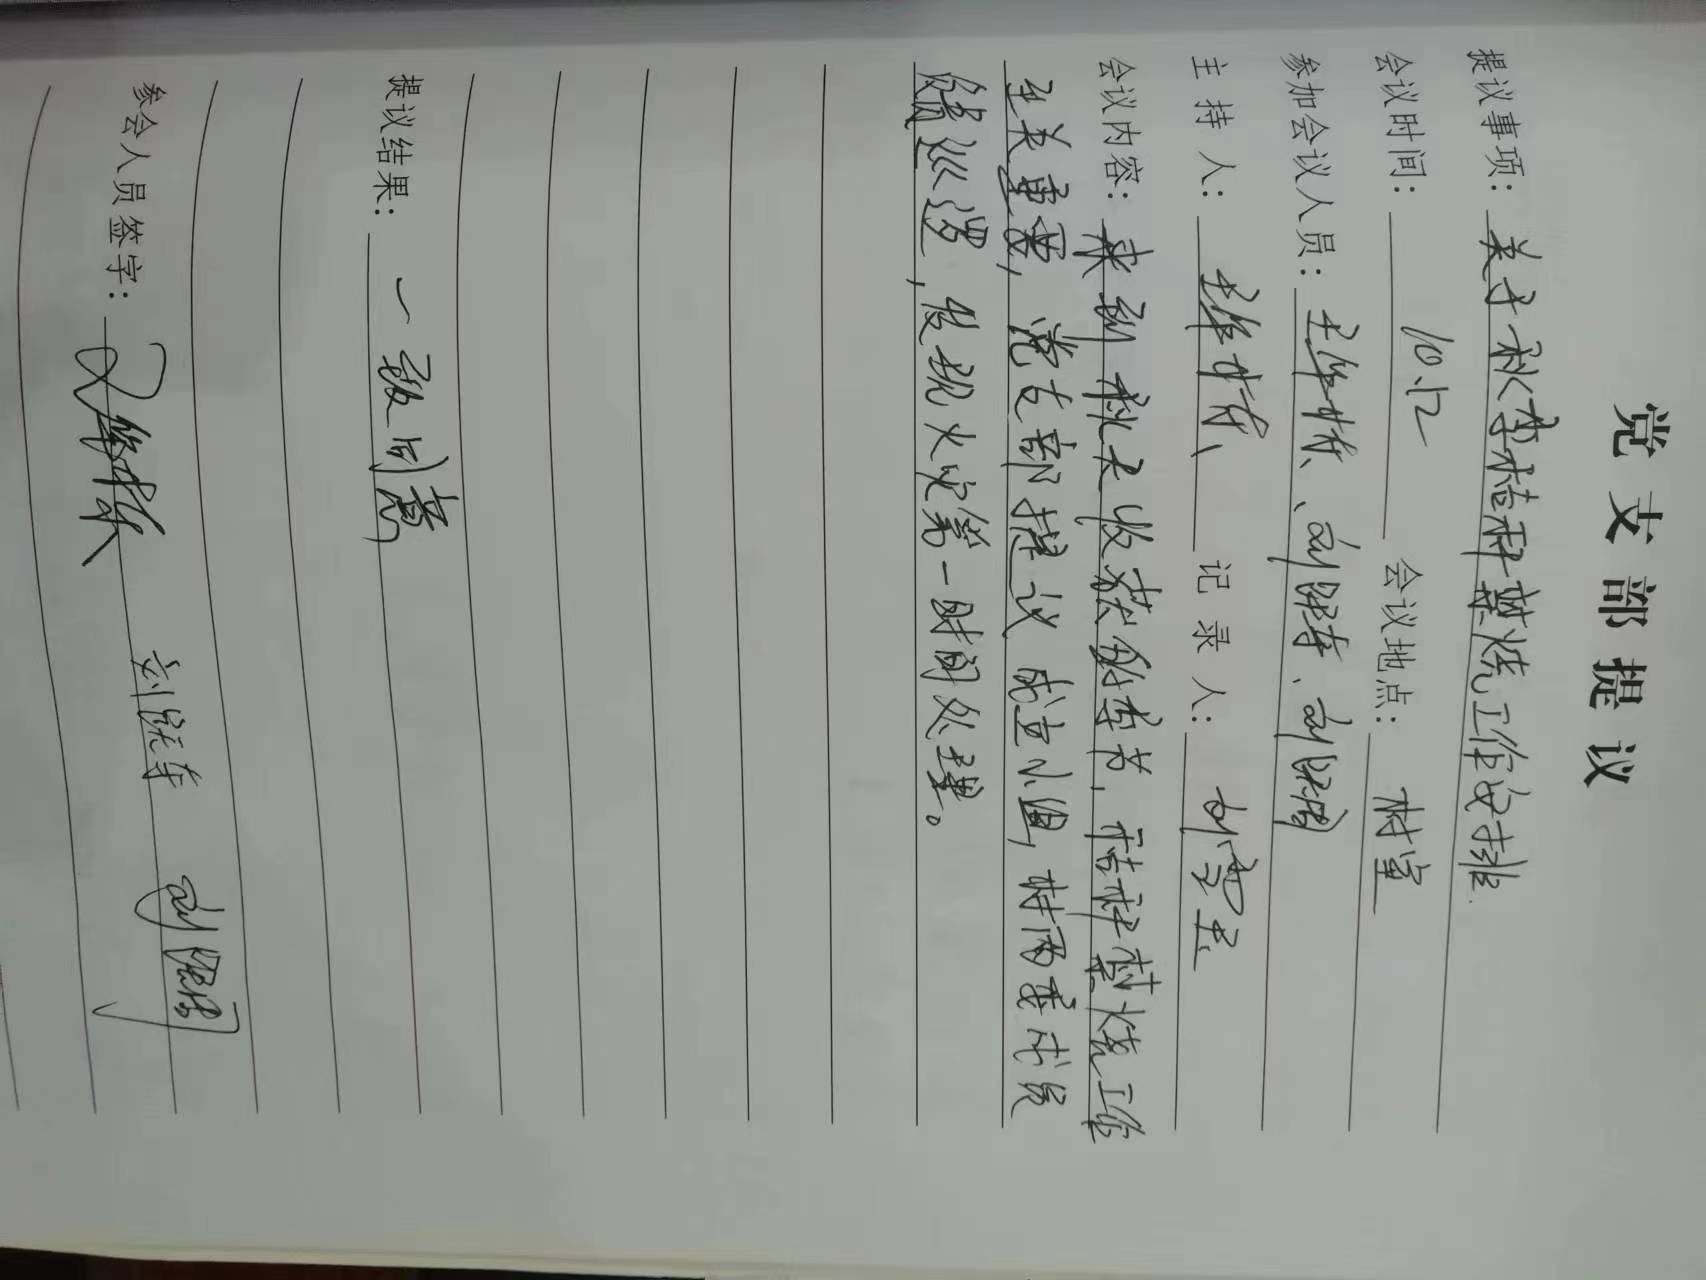 党支部提议
提议事项：关于秋季秸秆禁烧工作安排
会议时间：10.12 会议地点：村室
参加会议人员：、刘、刘
主持人： 记录人：刘
会议内容：来到秋天收获的季节，秸秆禁烧工作
至关重要，党支部提议成立小组，村两委成员
随巡逻，发现火灾第一时间处理。
提议结果：一致同意
参会人员签字：刘 刘